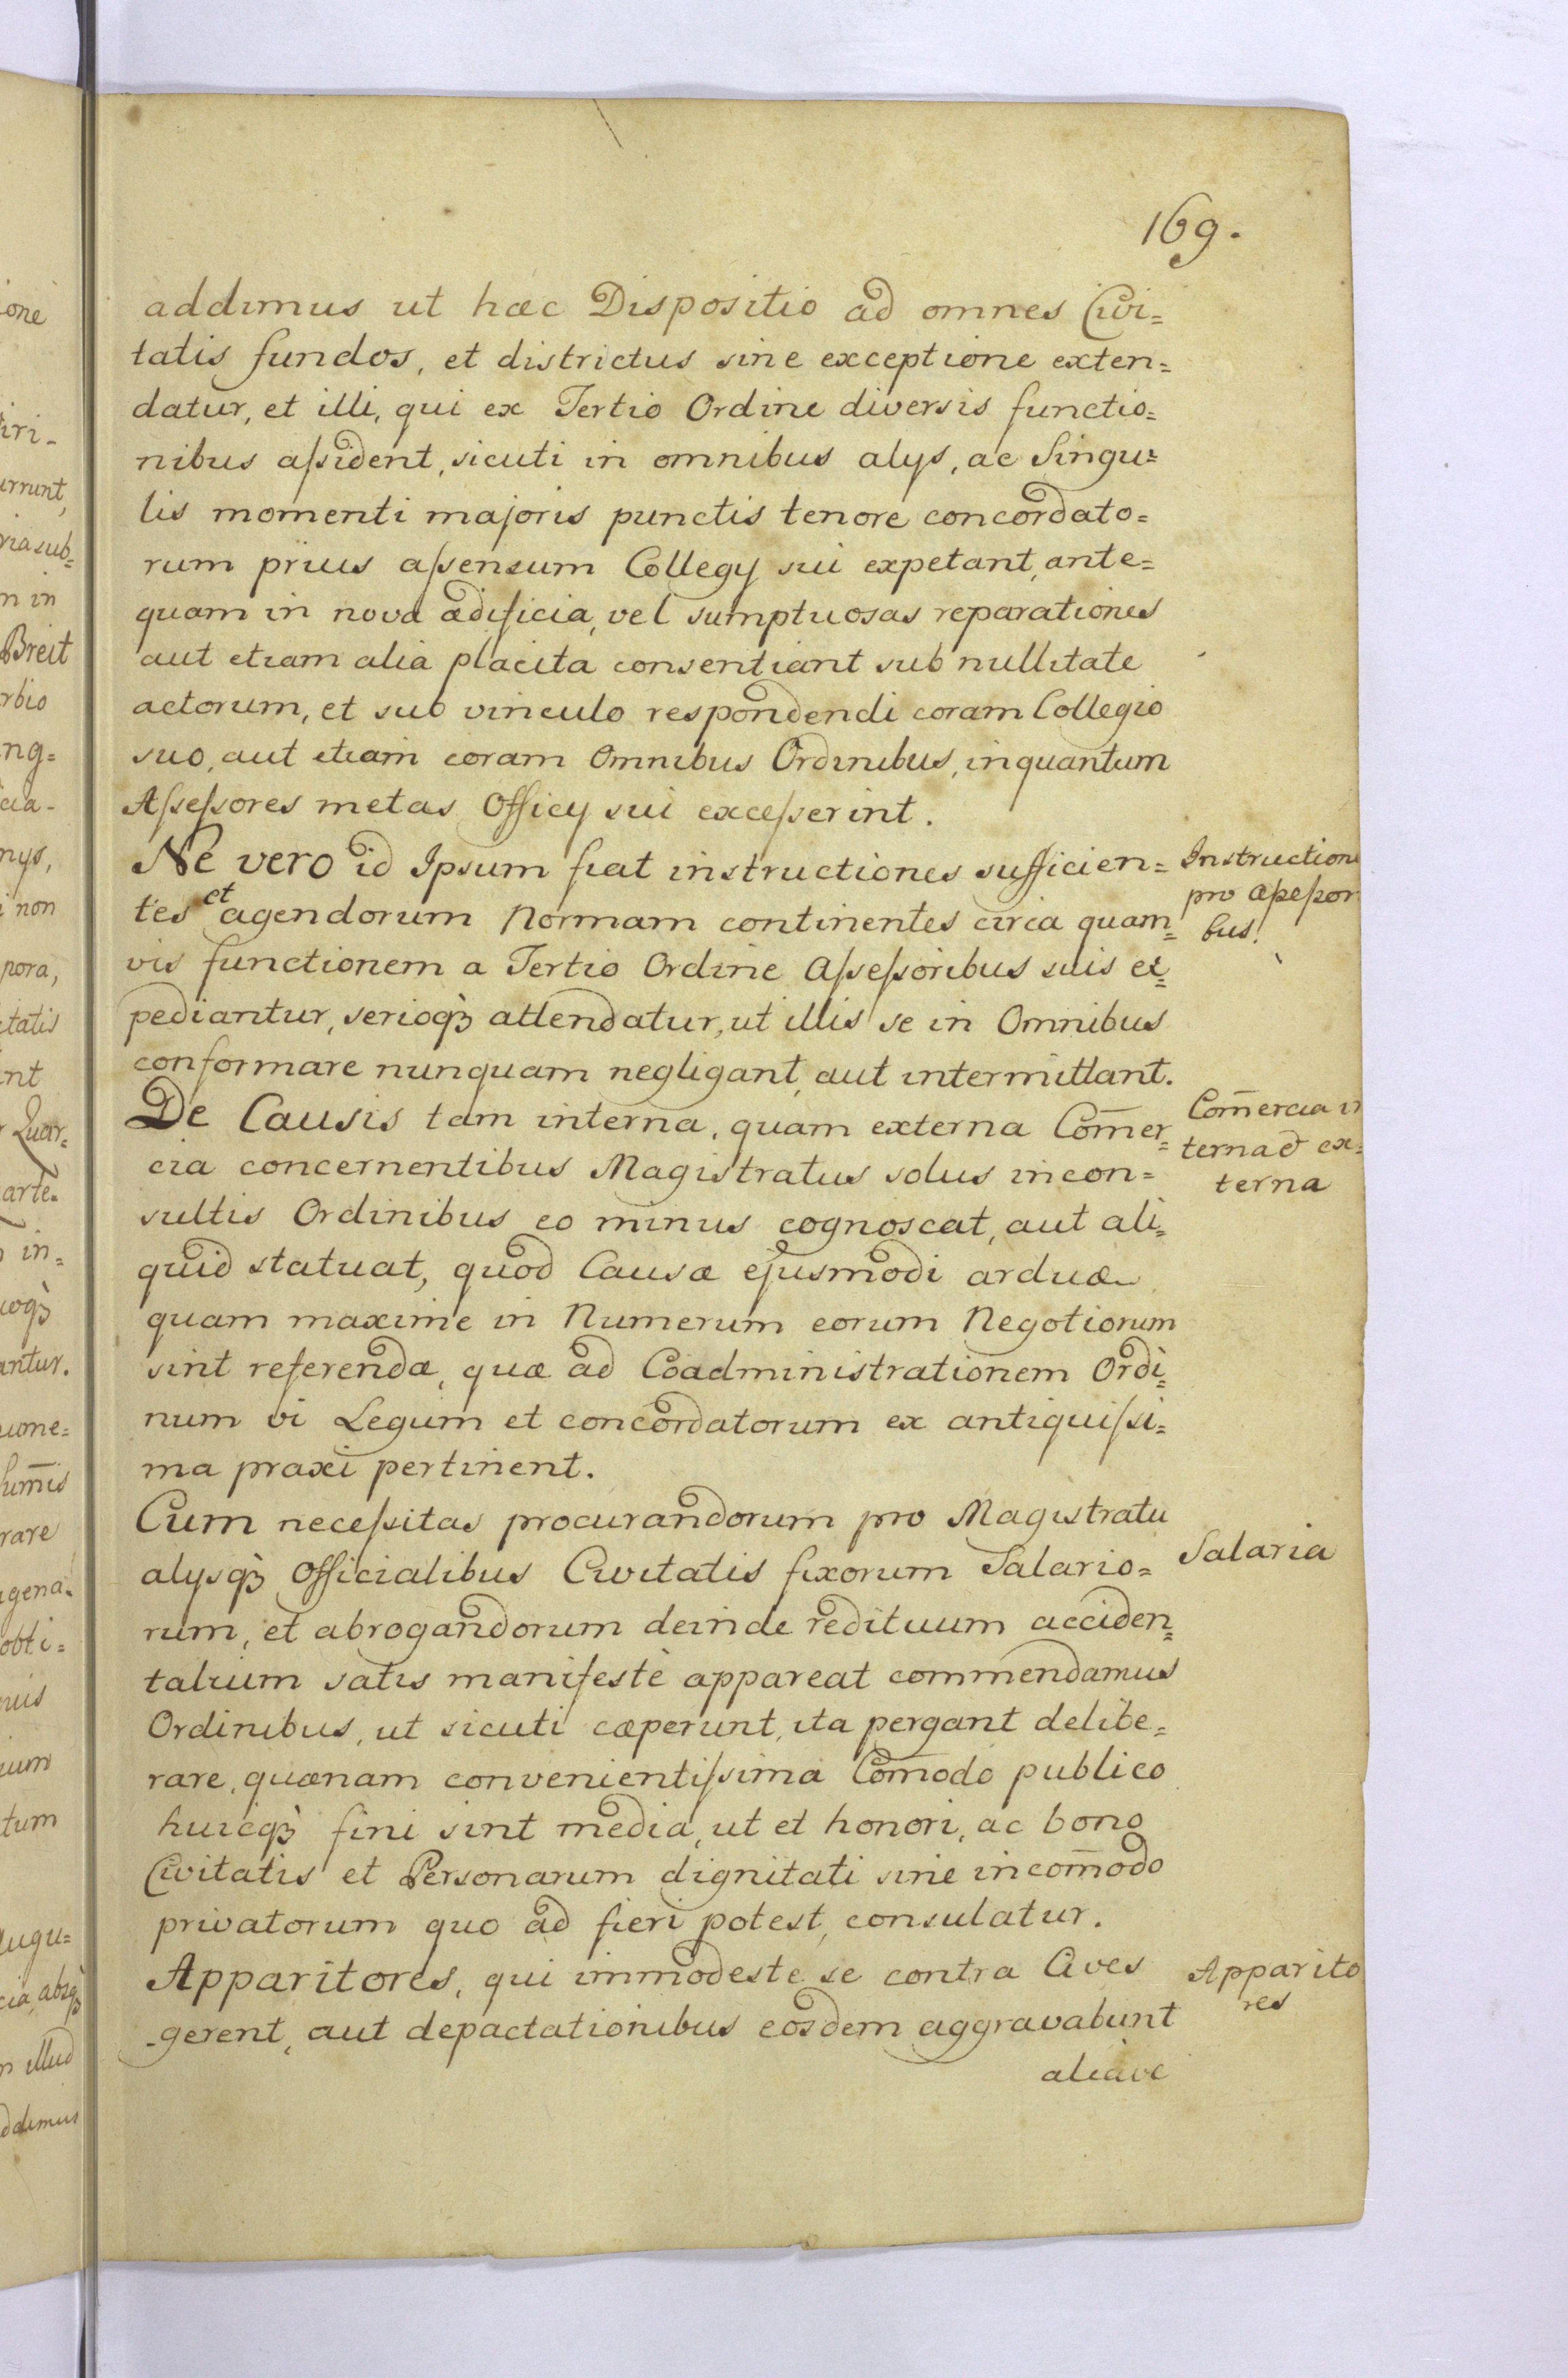 169.
addimus ut hæc Dispositio ad omnes Civi=
tatis fundos, et districtus sine exceptione exten=
datur, et illi, qui ex Tertio Ordine diversis functio=
nibus aſsident, sicuti in omnibus alys, ac Singu=
lis momenti majoris punctis tenore concordato=
rum prius aſsensum Collegy sui expetant, ante=
quam in nova ædificia, vel sumptuosas reparationes
aut etiam alia placita consentiant sub nullitate
actorum, et sub vinculo respondendi coram Collegio
suo, aut etiam coram Omnibus Ordinibus, inquantum
Aſseſsores metas Officy sui exceſserint.
Ne vero id Ipsum fiat instructiones sufficien=
tes et agendorum Normam continentes circa quam=
vis functionem a Tertio Ordine Aſseſsoribus suis ex=
pediantur, serioqȝ attendatur, ut illis se in Omnibus
conformare nunquam negligant, aut intermittant.
De Causis tam interna, quam externa Com̄er=
cia concernentibus Magistratus solus incon=
sultis Ordinibus eo minus cognoscat, aut ali=
quid statuat, quod Causæ ejusmodi arduæ
quam maxime in Numerum eorum Negotiorum
sint referendæ, quæ ad Coadministrationem Ordi=
num vi Legum et concordatorum ex antiquiſsi=
ma praxi pertinent.
Cum neceſsitas procurandorum pro Magistratu
alysqȝ Officialibus Civitatis fixorum Salario=
rum, et abrogandorum deinde redituum acciden=
talium satis manifestè appareat commendamus
Ordinibus, ut sicuti cæperunt, ita pergant delibe=
rare, quænam convenientiſsima Com̄odo publico
huicqȝ fini sint media, ut et honori, ac bono
Civitatis et Personarum dignitati sine incom̄odo
privatorum quo ad fieri potest, consulatur.
Apparitores, qui immodeste se contra Cives
gerent, aut depactationibus eosdem aggravabunt
aliave
Instruction
pro aſseſsor
bus.
Com̄ercia in
terna et ex=
terna
Salaria
Apparito
res